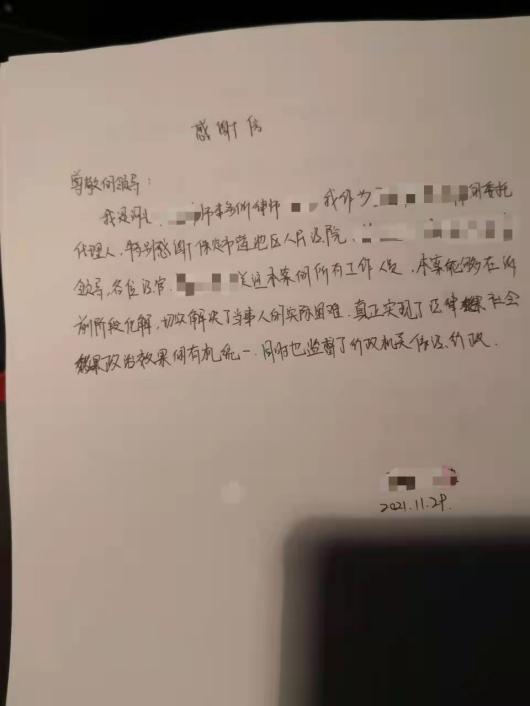 感谢信
尊敬的领导：
我是河北 师事务所律师 ，我作为 的委托
代理人，特别感谢保定市莲池区人民法院、
领导，各位法官、 关注本案的所有工作人员，本案能够在诉
前阶段化解，切实解决了当事人的实际困难，真正实现了法律效果社会
效果政治效果的有机统一，同时也监督了行政机关依法行政。
2021.11.29.